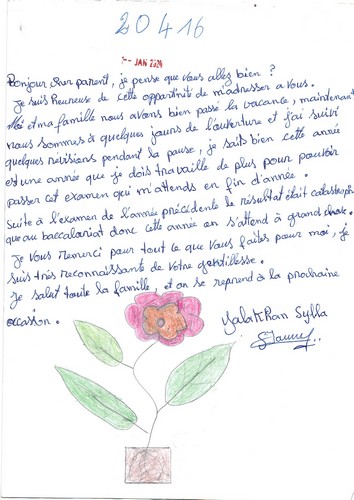 20416
JAN 2024
Bonjour cher parent, je pense que vous allez bien ?
Je suis heureuse de cette opportinité de m'adresser a vous.
Moi et ma famille nous avons bien passé la vacance, maintenant
nous sommes à quelques jours de l'ouverture et j'ai suivi
quelques revisions pendant la pause, je sais bien cette année
est une année que je dois travaille de plus pour pouvoir
passer cet examen qui m'attends en fin d'année.
Suite à l'examen de l'année précédente le resultat était catastroph
que au baccalauriat donc cette année on s'attend à grand chose.
Je vous remerci pour tout ce que vous faites pour moi, je
suis très reconnaissante de votre gentillesse.
Je salut toute la famille, et on se reprend à la prochaine
occasion.
Sylla